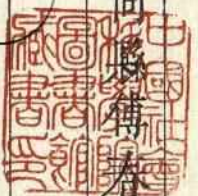 同縣傅春
中國社會
科學院
圖書館
藏書印